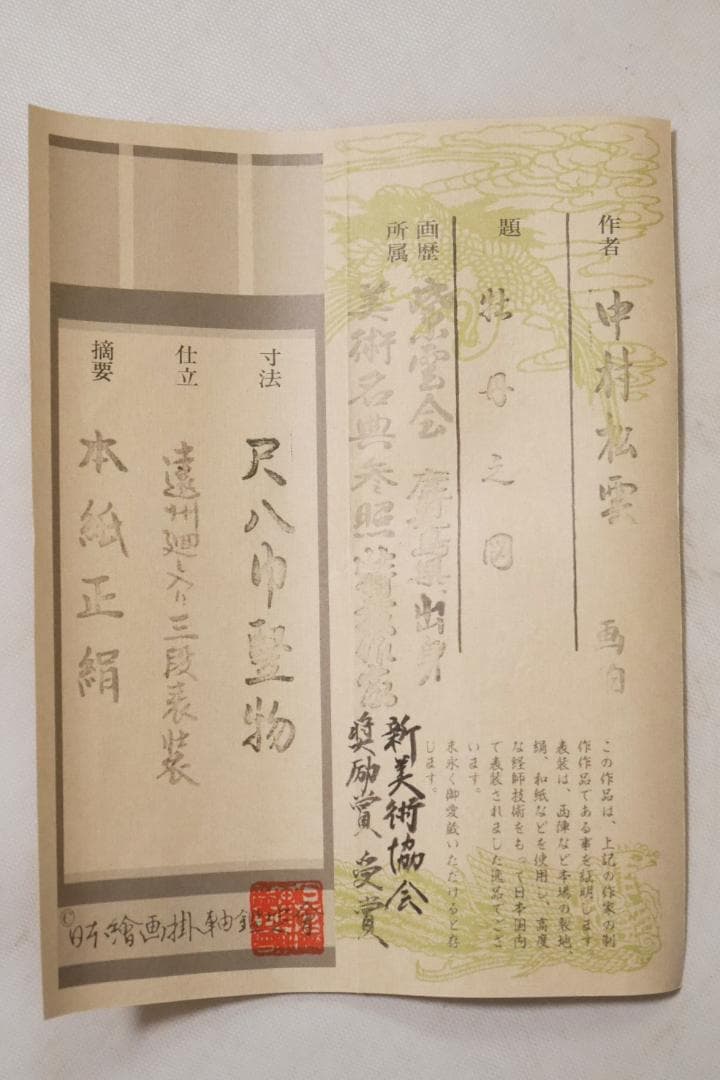 作者 中村松雲 画伯
題 牡丹之図
画歴 紫雲会 出身
所属 美術名典参照
新美術協会
奨励賞受賞
この作品は、上記の作家の制
作作品である事を証明します。
表装は、西陣など本場の製地、
絹、和紙などを使用し、高度
な経師技術をもって日本国内
で表装されました逸品でござ
います。
末永く御愛蔵いただけると存
じます。
寸法 尺八巾竪物
仕立 遠州廻し入り三段表装
摘要 本紙正絹
©日本繪画掛軸